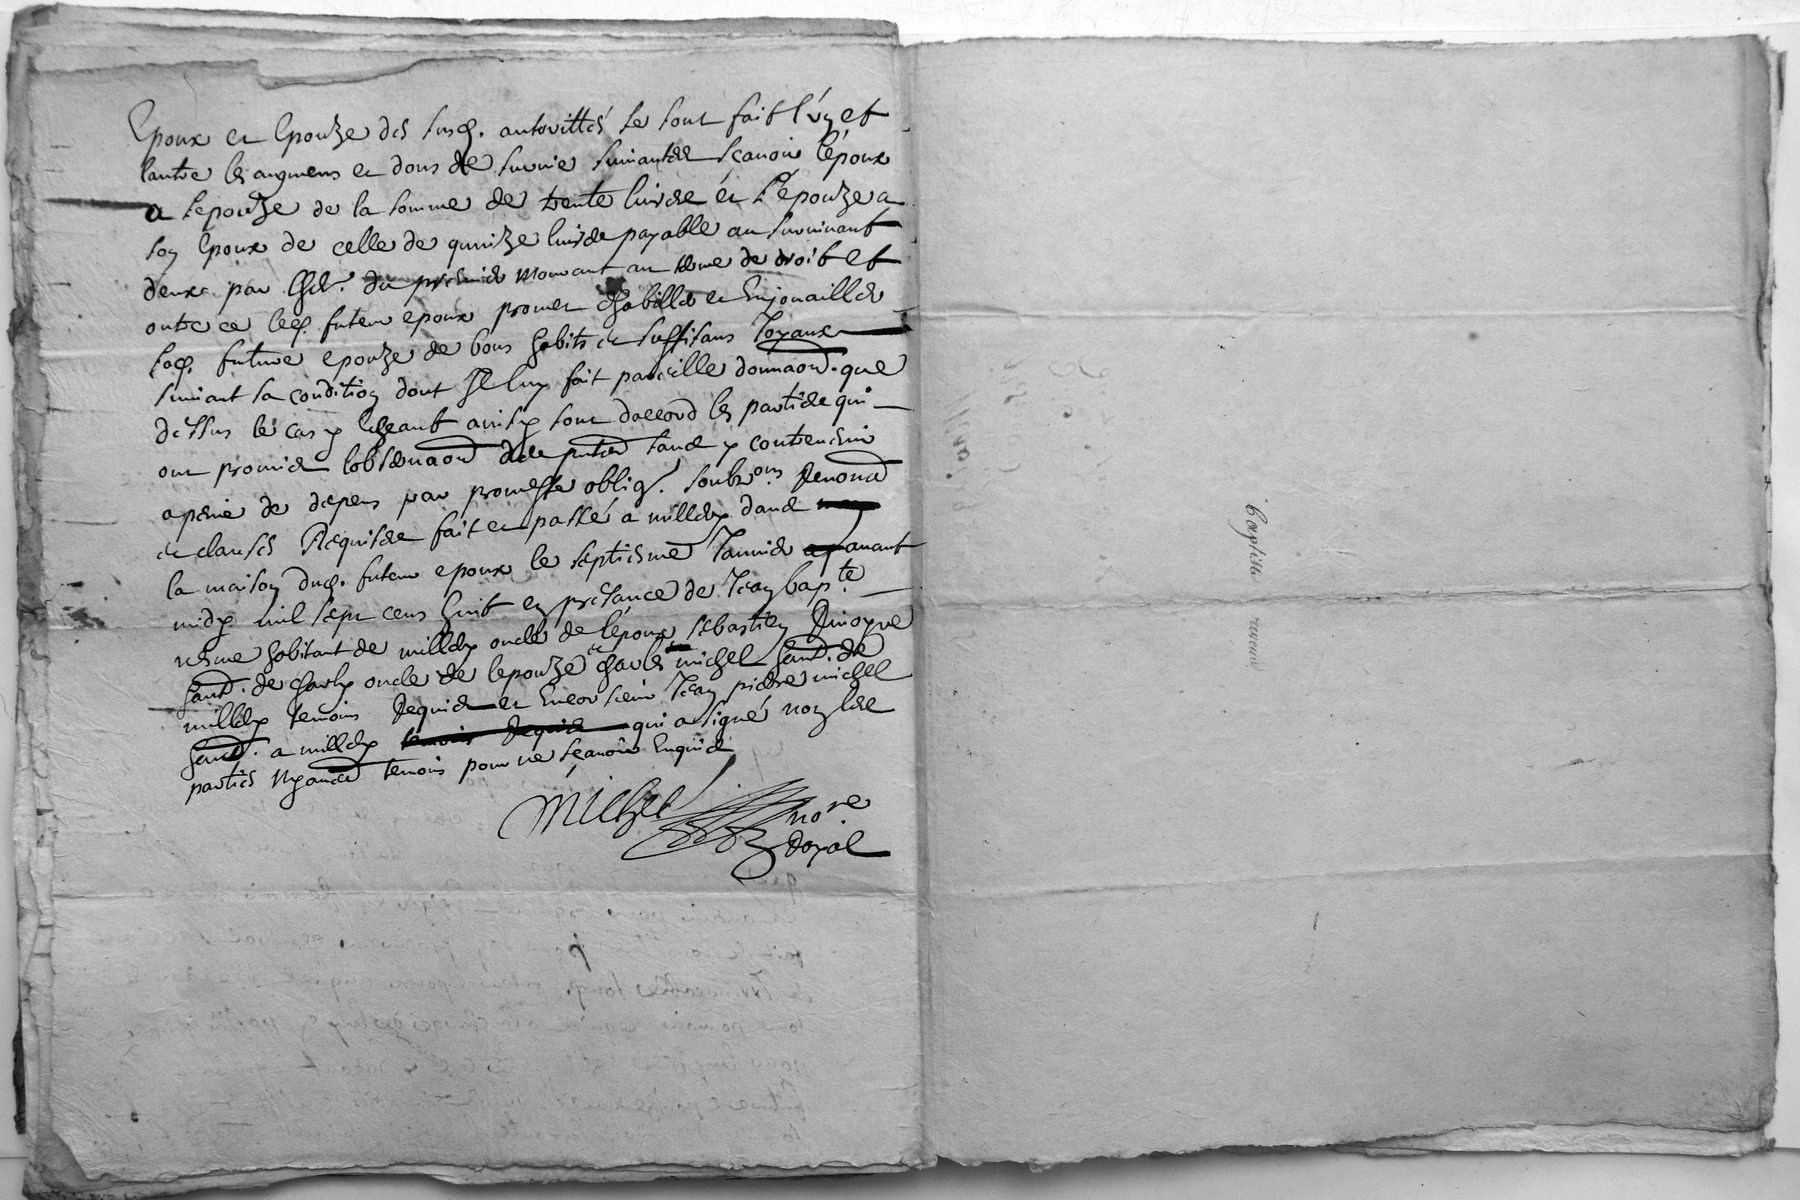 Epoux et Epouze des susd. authorittés se sont fait l'un et
lautre les augmens et dons de survie suivantes scavoir l'époux
a lepouze de la somme de trente livres et l'épouze a
son Epoux de celle de quinze livres payable au survivant
deux par du premier mourant au terme de droit et
outre ce led. futeur epoux promet dhabiller et Enjouailler
lad. future epouze de bons habits et suffisans Joyaux
suivant sa condition dont Il luy fait pareille donnaon. que
dessus le cas y Escheant ainsy sont daccord les parties qui
ont promis lobservaon des pntes sans y contrevenir
a peine de depens par promesse oblig. soub.ons Renond
et clauses Requises fait et passé a millery dans
la maison dud. futeur epoux le septiesme Janvier avant
midy mil sept cens huit en presance de Jean bap.te
habitant de millery oncle de l'époux sebastien
hant. de charly oncle de lepouze et charles michel hant. de
millery temoins Requis et Encor sieur Jean pierre michel
hant. a millery temoins Requis qui a signé non les
parties Ny autres temoins pour ne scavoir Enquis
Michel no.re
Royal
Baptiste